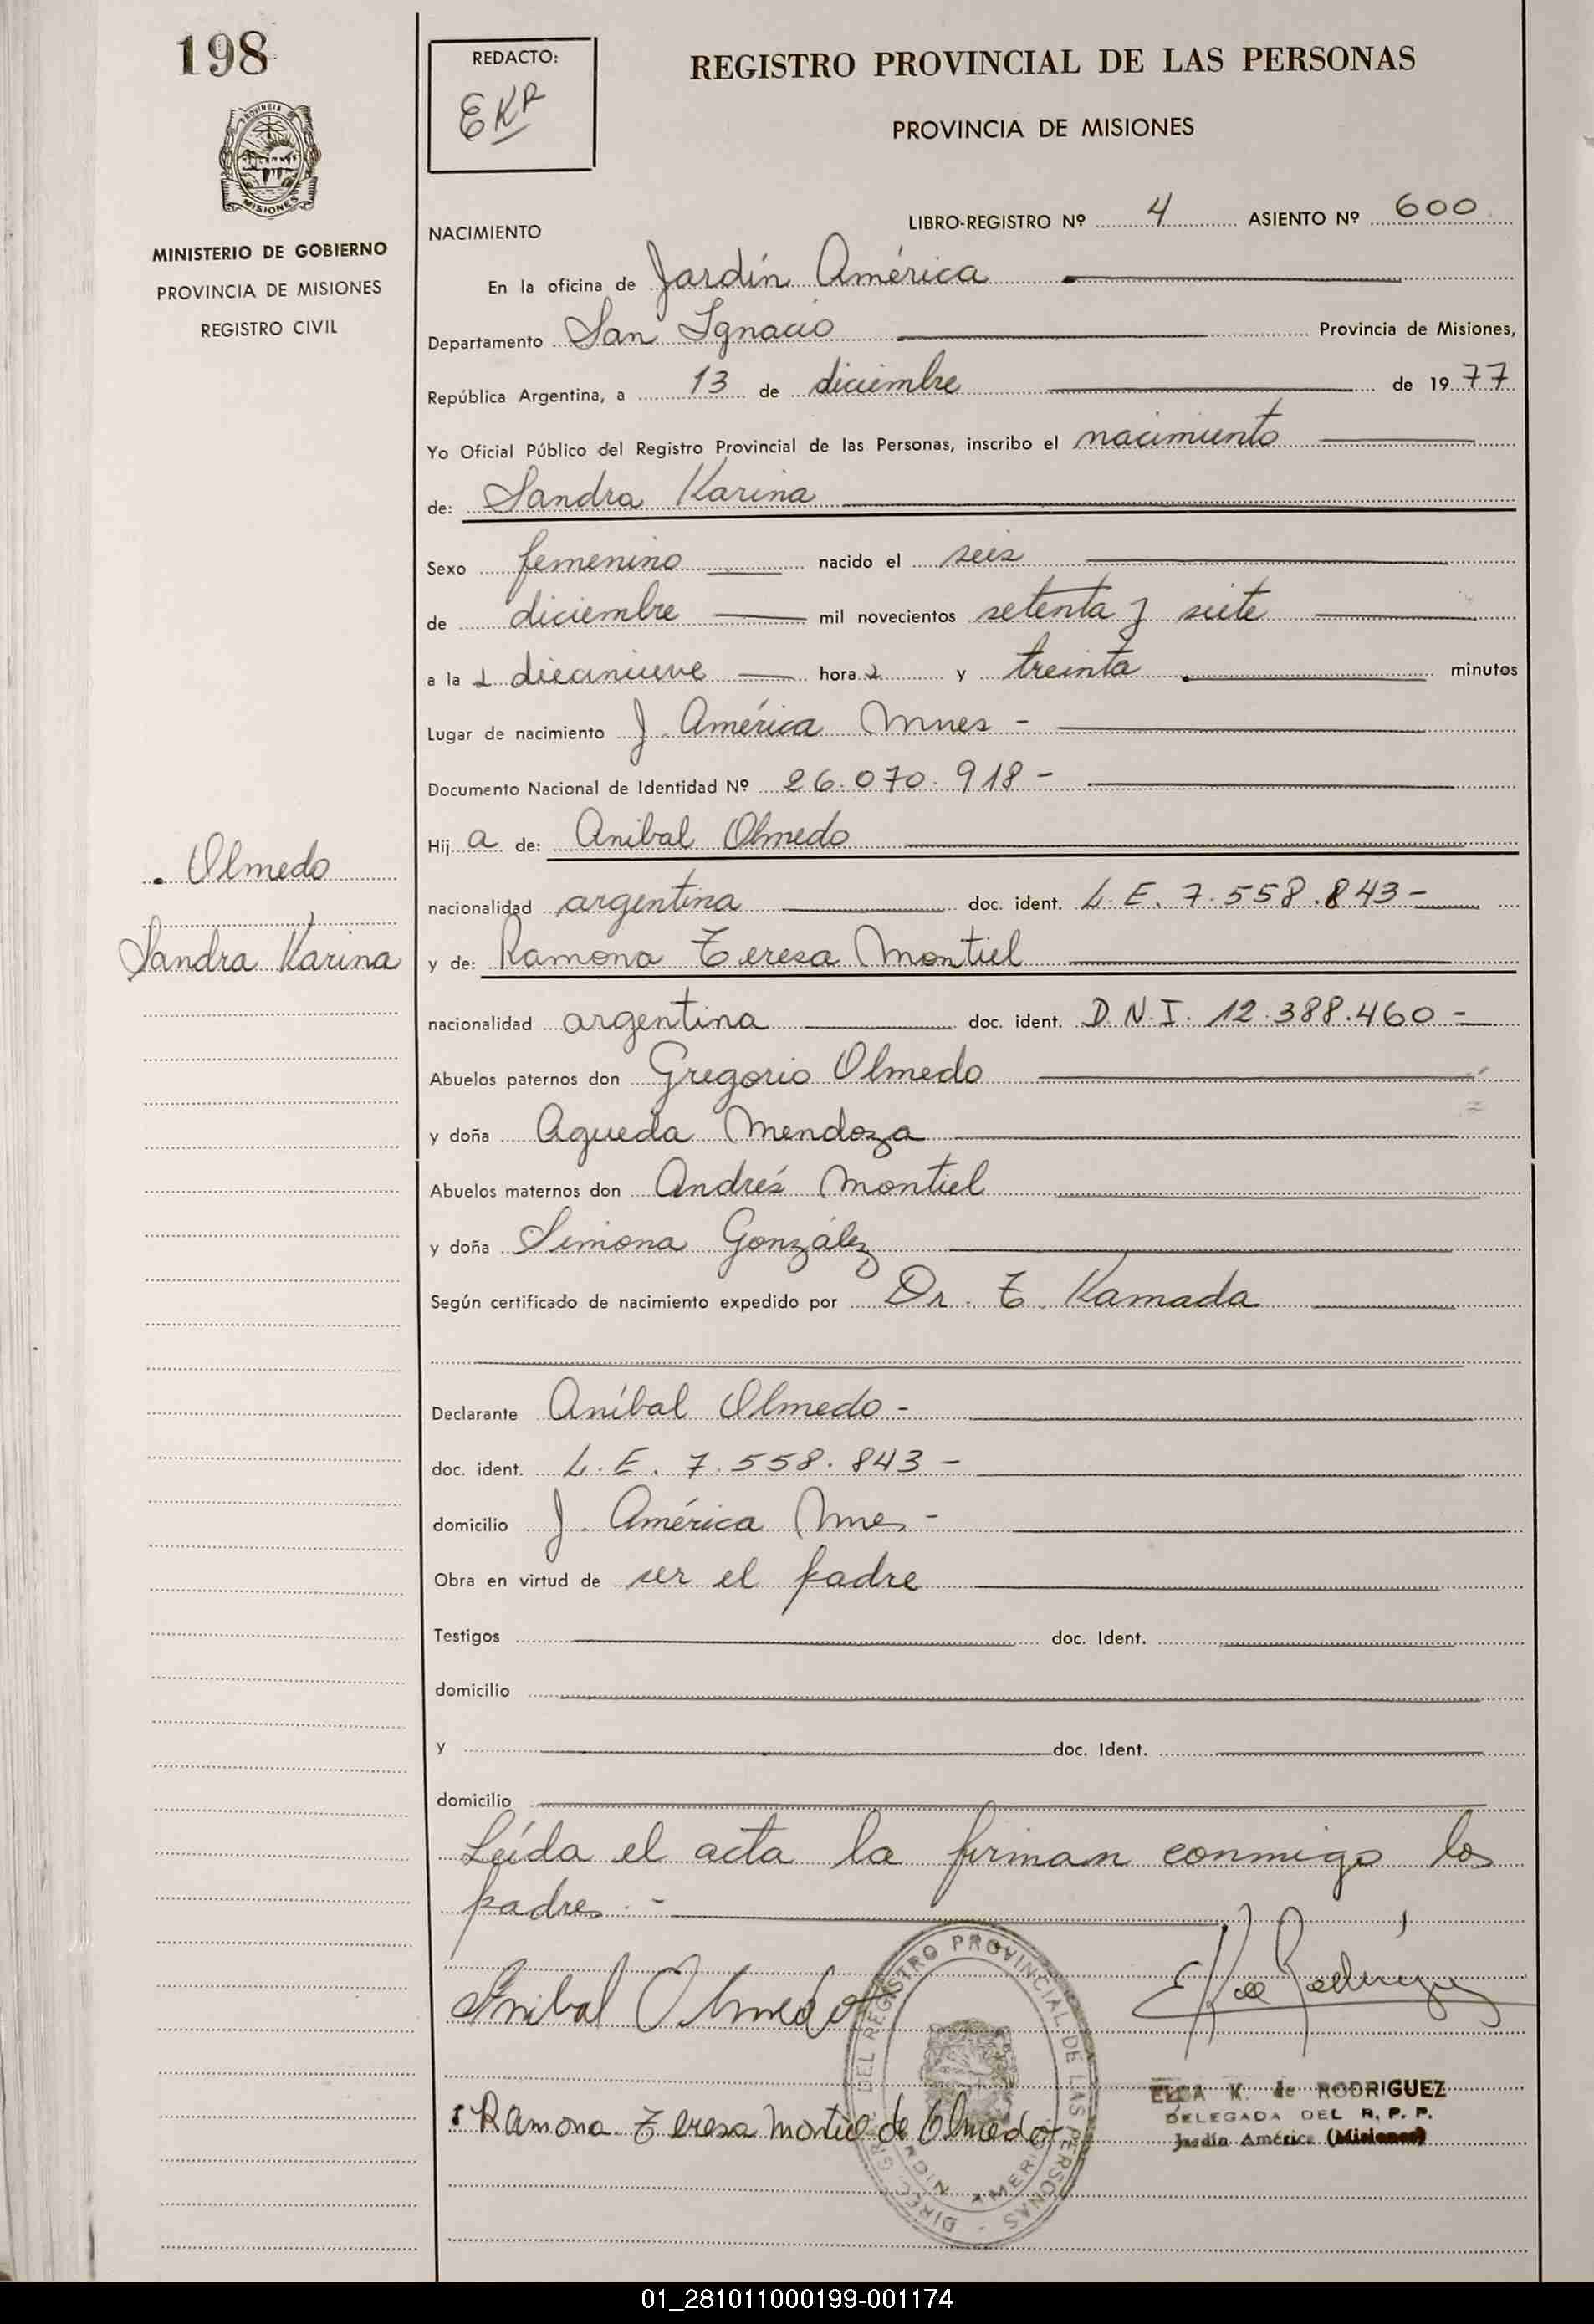 198
REDACTO:
EKR
REGISTRO PROVINCIAL DE LAS PERSONAS
PROVINCIA DE MISIONES
PROVINCIA
MISIONES
MINISTERIO DE GOBIERNO
PROVINCIA DE MISIONES
REGISTRO CIVIL
NACIMIENTO
LIBRO-REGISTRO Nº 4 ASIENTO Nº 600
En la oficina de Jardín América
Departamento San Ignacio Provincia de Misiones,
República Argentina, a 13 de diciembre de 1977
Yo Oficial Público del Registro Provincial de las Personas, inscribo el nacimiento
de: Sandra Karina
Sexo femenino nacido el seis
de diciembre mil novecientos setenta y siete
a la s diecinueve hora s y treinta minutos
Lugar de nacimiento J. América Mnes -
Documento Nacional de Identidad Nº 26.070.918 -
Hij a de: Anibal Olmedo
nacionalidad argentina doc. ident. L.E. 7.558.843 -
y de: Ramona Teresa Montiel
nacionalidad argentina doc. ident. D.N.I. 12.388.460 -
Abuelos paternos don Gregorio Olmedo
y doña Agueda Mendoza
Abuelos maternos don Andrés Montiel
y doña Simona González
Según certificado de nacimiento expedido por Dr. T. Kamada
Declarante Aníbal Olmedo -
doc. ident. L.E. 7.558.843 -
domicilio J. América Mnes -
Obra en virtud de ser el padre
Testigos doc. Ident.
domicilio
y doc. Ident.
domicilio
Leída el acta la firman conmigo los
padres. -
Olmedo
Sandra Karina
Anibal Olmedo
EK de Rodriguez
Ramona Teresa Montiel de Olmedo
DIREC. GRAL. DEL REGISTRO PROVINCIAL DE LAS PERSONAS
JARDIN AMERICA
ELCA K. de RODRIGUEZ
DELEGADA DEL R. P. P.
Jardín América (Misiones)
01_281011000199-001174